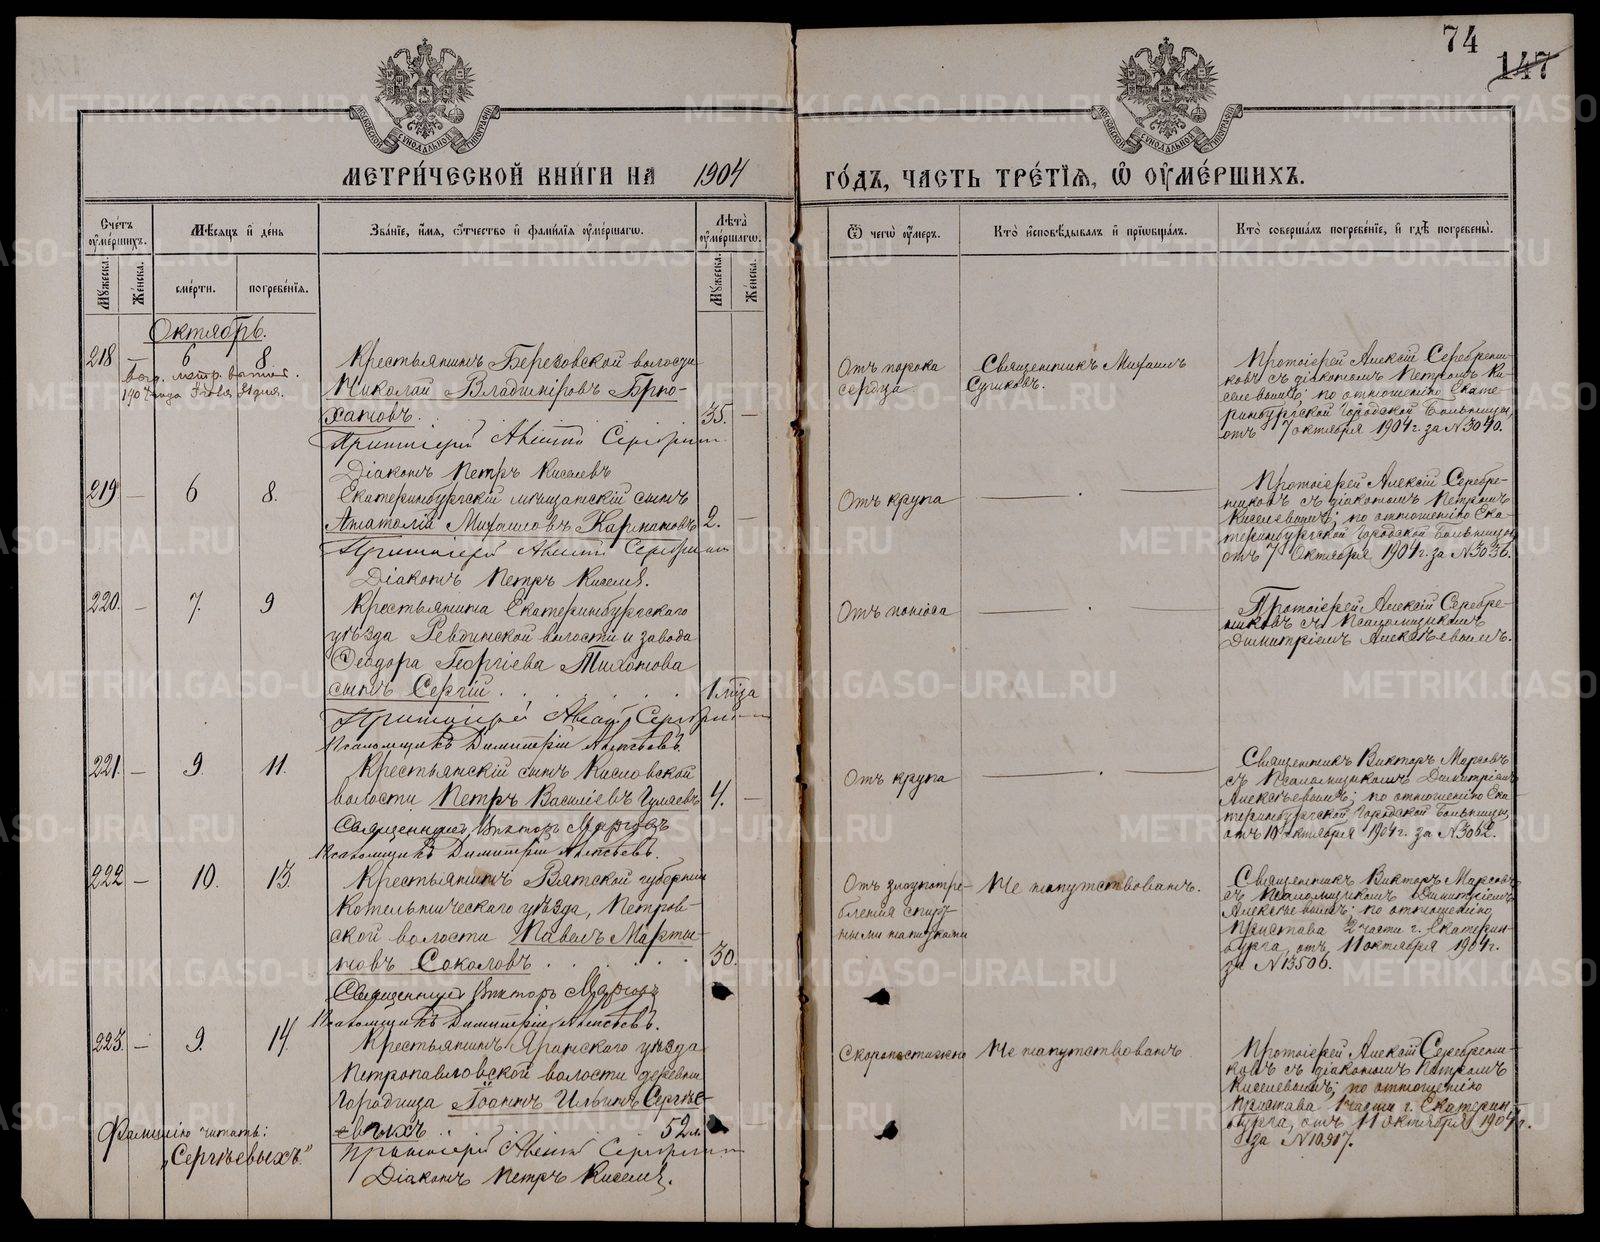 74
147
МЕТРИ́ЧЕСКОЙ КНИ́ГИ НА 1904 ГО́ДЪ, ЧАСТЬ ТРЕ́ТІѦ, Ѽ ОУМЕ́РШИХЪ.
Сче́тъ оуме́ршихъ.
Мѣсяцъ и день
Зва́ніе, и́мя, о́тчество и фами́лія оуме́ршагѡ.
Лѣта̀ оуме́ршагѡ.
Ѿ чегѡ̀ оу́меръ.
Кто̀ исповѣ́дывалъ и пріѡбща́лъ.
Кто̀ соверша́лъ погребе́ніе, и гдѣ̀ погребены̀.
Мужеска.
Женска.
сме́рти.
погребе́нія.
Мужеска.
Женска.
Октябрь.
218
6
8
1904 года
Крестьянинъ Березовской волости
Николай Владиміровъ Брю-
хановъ.
35.
Протоіерей Алексій Серебрен
Діаконъ Петръ Киселевъ
Отъ порока
сердца
Священникъ Михаилъ
Сушковъ.
Протоіерей Алексій Серебрени-
ковъ съ діакономъ Петромъ Ки-
селевымъ, по отношенію Екате-
ринбургской Городской Больницы,
отъ 7 октября 1904 г. за N 3040.
219
—
6
8.
Екатеринбургскій мѣщанскій сынъ
Анатолій Михаиловъ Кармановъ
2.
Протоіерей Алексій Серебрен
Діаконъ Петръ Киселев.
Отъ крупа
Протоіерей Алексій Серебре-
никовъ съ діакономъ Петромъ
Киселевымъ; по отношенію Ека-
теринбургской Городской Больницы
отъ 7 Октября 1904 г. за N 3036.
220.
—
7.
9
Крестьянина Екатеринбургскаго
уѣзда Ревдинской волости и завода
Ѳеодора Георгіева Тихонова
сынъ Сергій
1 года
Протоіерей Алексій Серебрен
Псаломщикъ Димитрій Алексѣевъ.
Отъ поноса
Протоіерей Алексій Серебре-
никовъ съ Псаломщикомъ
Димитріемъ Алексѣевымъ.
221.
—
9.
11.
Крестьянскій сынъ Кисловской
волости Петръ Василіевъ Гуляевъ
4.
Священникъ Викторъ Марсовъ
Псаломщикъ Димитрій Алексѣевъ.
Отъ крупа
Священникъ Викторъ Марсовъ
съ Псаломщикомъ Димитріемъ
Алексѣевымъ; по отношенію Ека-
теринбургской Городской Больницы,
октября 1904 г. за N 3062.
222
—
10.
13.
Крестьянинъ Вятской губерніи
Котельническаго уѣзда, Петров-
ской волости Павелъ Марты-
новъ Соколовъ
30.
Священникъ Викторъ Марсовъ
Псаломщикъ Димитрій Алексѣевъ.
Отъ злоупотре-
бленія спирт-
ными напитками
Не напутствованъ.
Священникъ Викторъ Марсовъ
съ Псаломщикомъ Димитріемъ
Алексѣевымъ; по отношенію
Пристава 2 части г. Екатерин-
бурга, отъ 11 октября 1904 г.
за N 13506.
223.
—
9.
14.
Крестьянинъ Яранскаго уѣзда
Петропавловской волости деревни
Городища Іоаннъ Ильинъ Сергѣе-
выхъ
52 л.
Протоіерей Алексій Серебрен
Діаконъ Петръ Киселев.
Фамилію читать:
„Сергѣевыхъ"
Скоропостижно
Не напутствованъ
Протоіерей Алексій Серебрени-
ковъ съ діакономъ Петромъ
Киселевымъ; по отношенію
Пристава 1 части г. Екатерин-
бурга, отъ 11 октября 1904 г.
за N 10.917.
METRIKI.GASO-URAL.RU